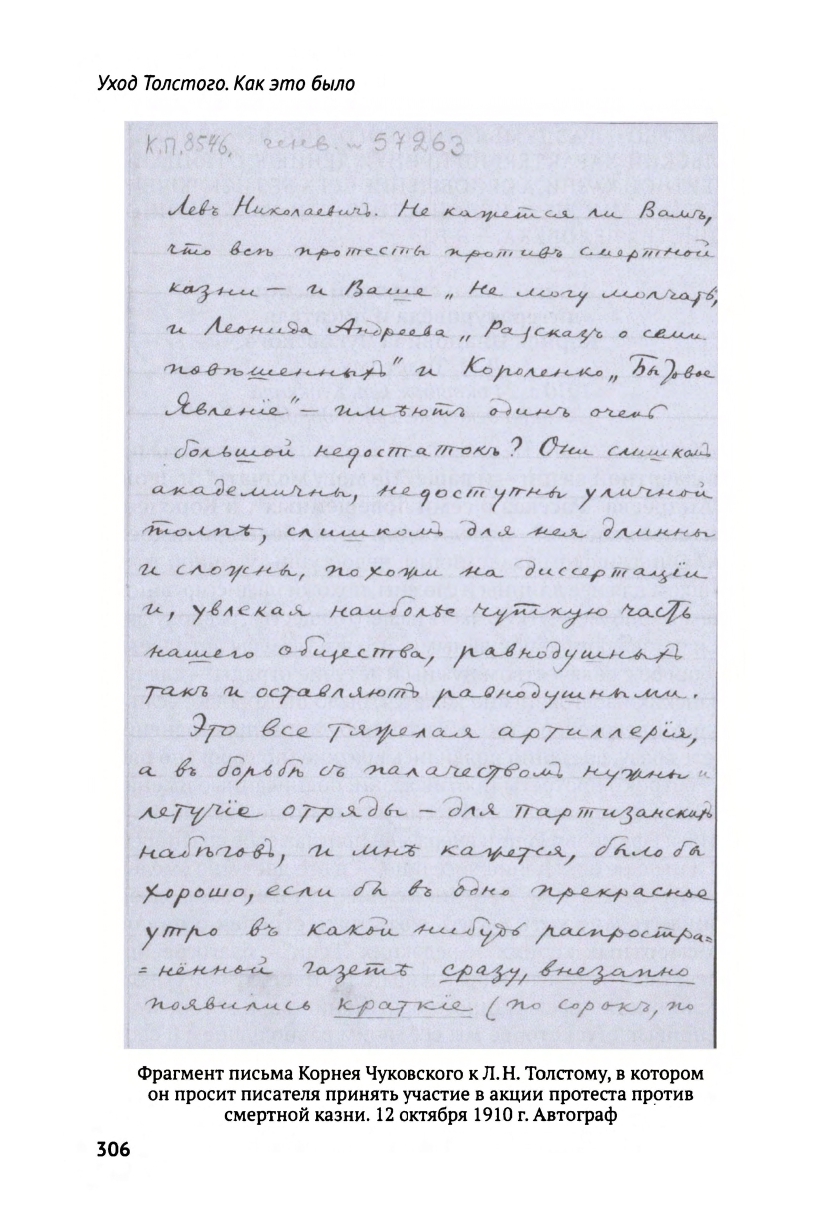 Уход Толстого. Как это было
К.П. 8546. инв. № 57263
Левъ Николаевичъ. Не кажется ли Вамъ,
что всѣ протесты противъ смертной
казни — и Ваше „Не могу молчать,
и Леонида Андреева „Разсказъ о семи
повѣшенныхъ" и Короленко „Бытовое
Явленіе" — имѣютъ одинъ очень
большой недостатокъ? Они слишкомъ
академичны, недоступны уличной
толпѣ, слишкомъ для нея длинны
и сложны, похожи на диссертаціи
и, увлекая наиболѣе чуткую часть
нашего общества, равнодушныхъ
такъ и оставляютъ равнодушными.
Это все тяжелая артиллерія,
а въ борьбѣ съ палачествомъ нужны и
летучіе отряды — для партизанскихъ
набѣговъ, и мнѣ кажется, было бы
хорошо, если бы въ одно прекрасное
утро въ какой нибудь распростра=
=нённой газетѣ сразу, внезапно
появились краткіе (по сорокъ, по
Фрагмент письма Корнея Чуковского к Л. Н. Толстому, в котором
он просит писателя принять участие в акции протеста против
смертной казни. 12 октября 1910 г. Автограф
306